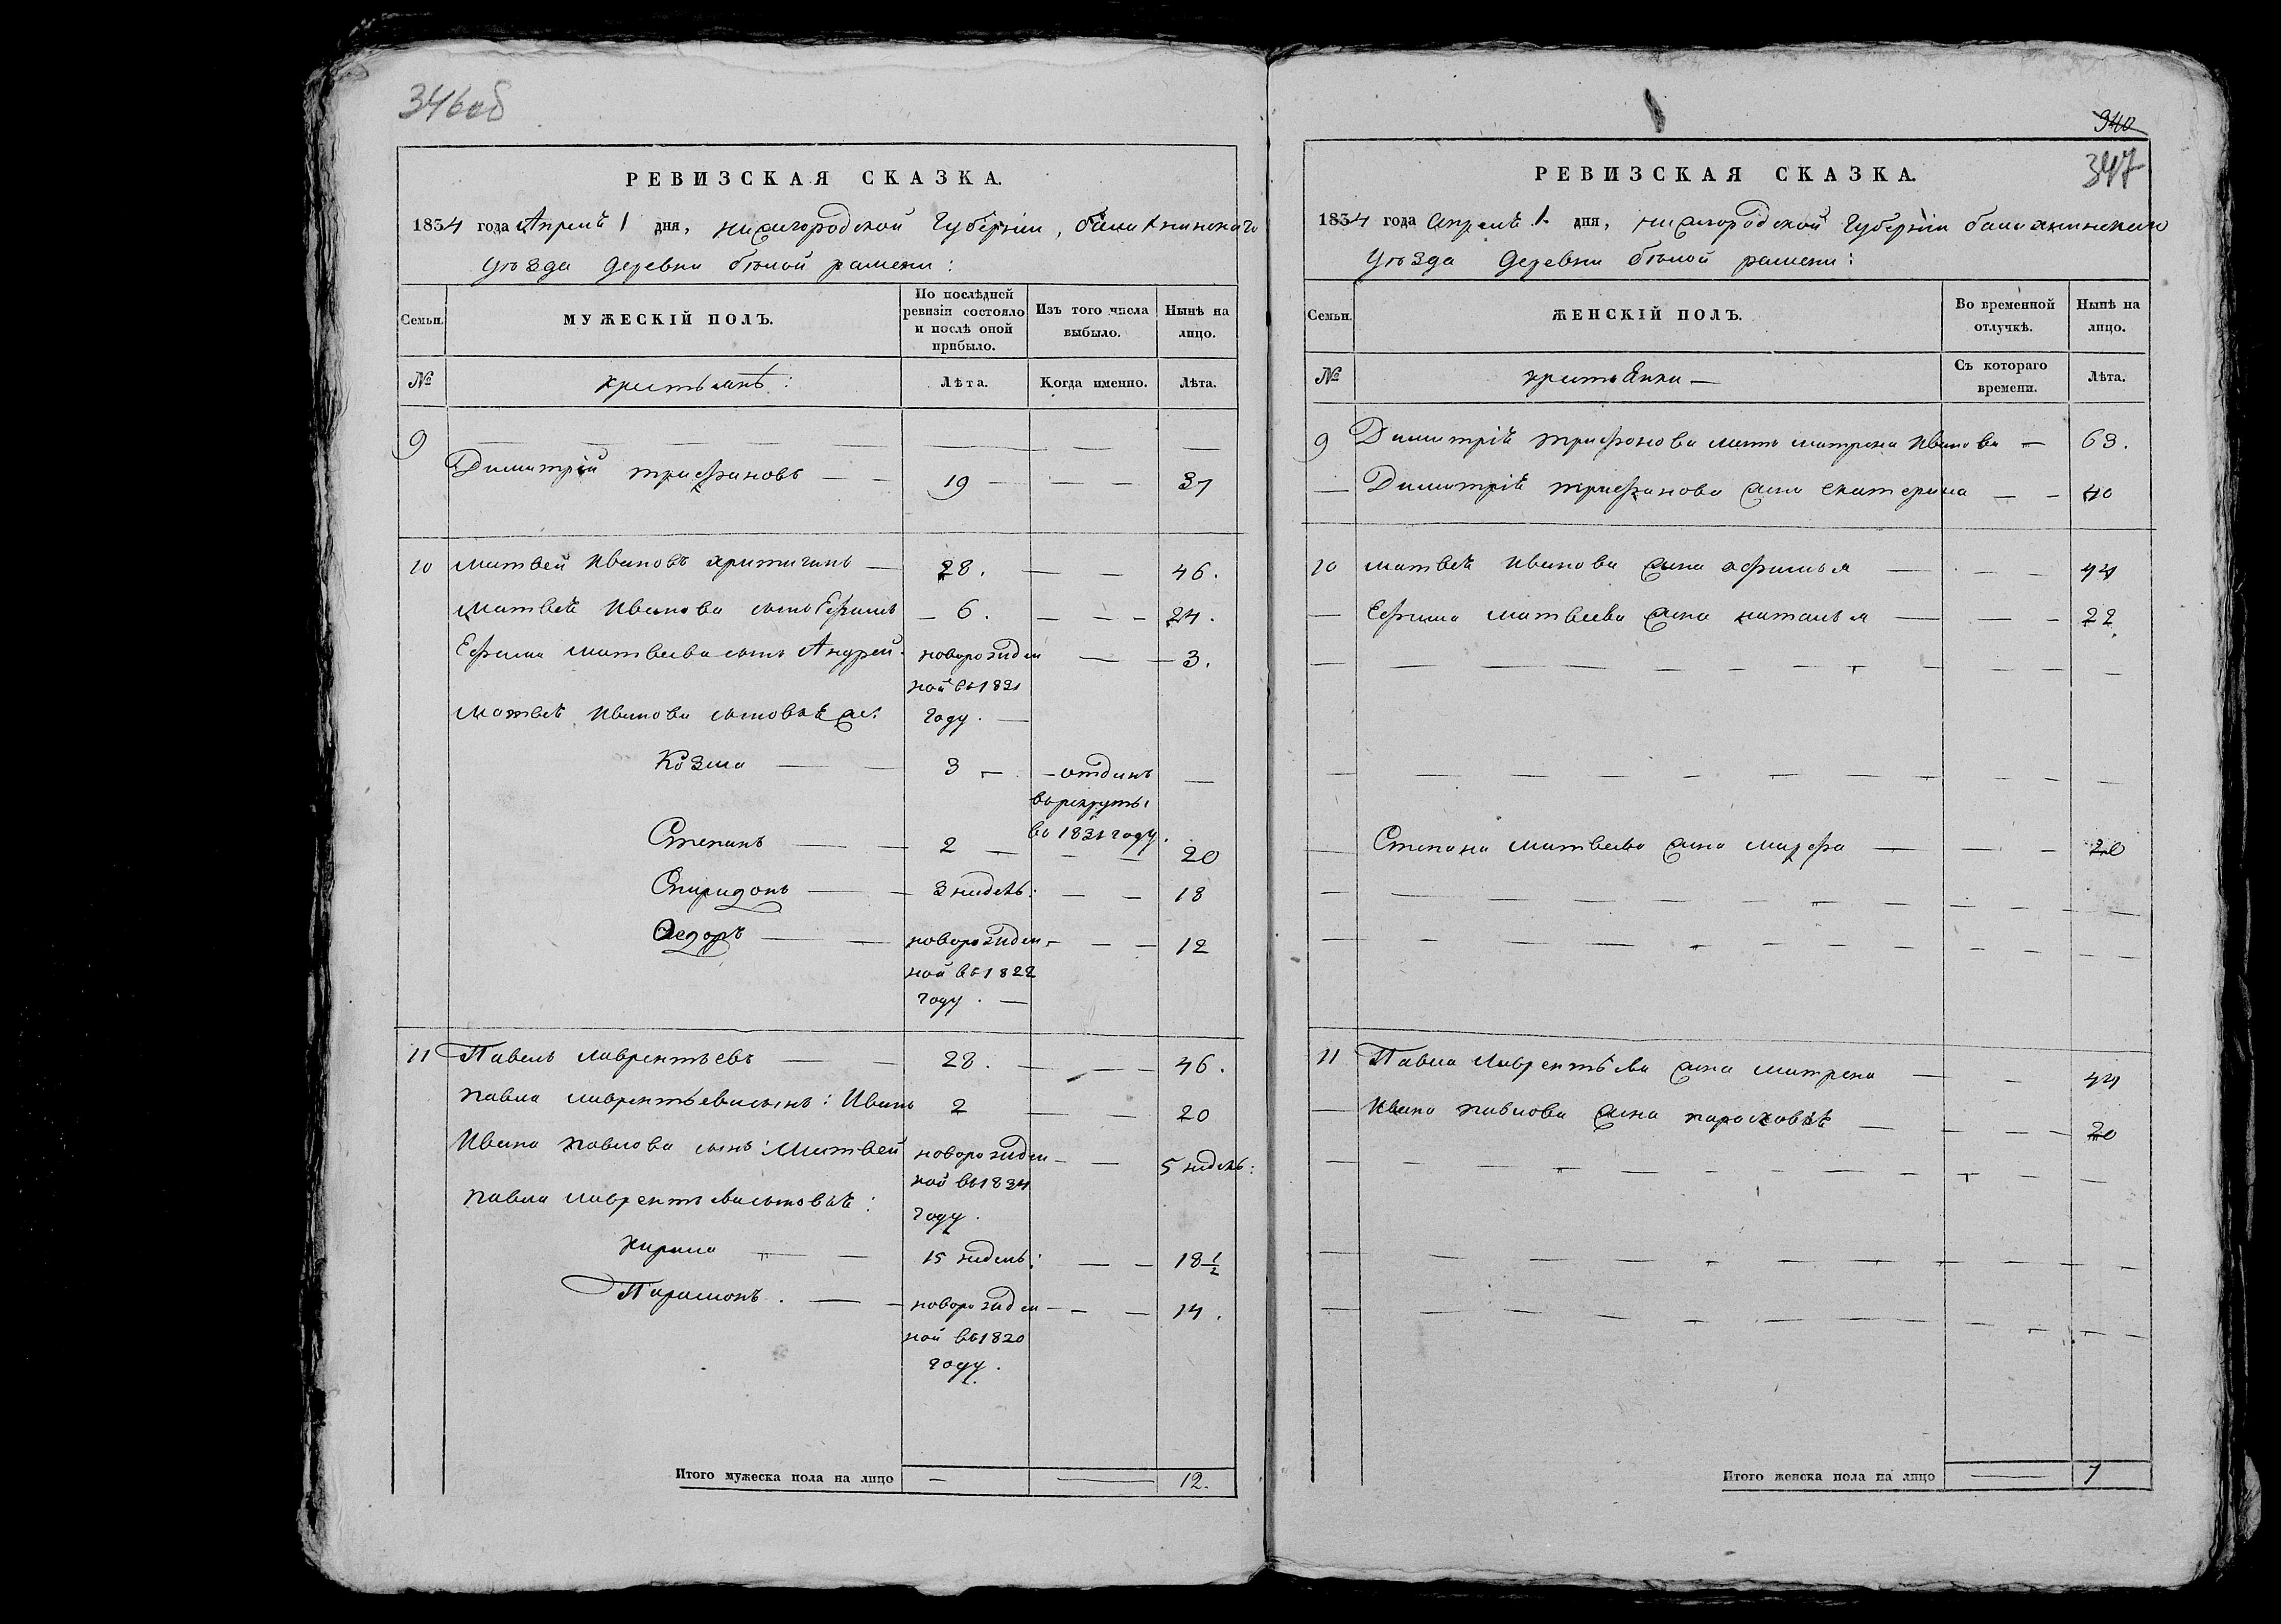 346об
РЕВИЗСКАЯ СКАЗКА.
1834 года Апреля 1 дня, нижегородской Губернии, балахнинскаго
уѣзда деревни бѣлой рамени:
Семьи.
МУЖЕСКІЙ ПОЛЪ.
По послѣдней ревизіи состояло и послѣ оной прибыло.
Изъ того числа выбыло.
Нынѣ на лицо.
№
Лѣта.
Когда именно.
Лѣта.
9
Димитрій трифановъ — — 19 — — — 37
10 матвей Ивановъ — 28. — — 46.
матвея Иванова сынъ Ефимъ — 6. — — — 24.
Ефима матвеева сынъ Андрей новорожден — — 3.
ной въ 1831
матвея Иванова сыновья году. —
Козма — — 3 — — отданъ —
въ рекруты
въ 1831 году.
Степанъ — — 2 — — — 20
Спиридонъ — — 3 недель: — — 18
Федоръ — — новорожден — — — 12
ной въ 1822
году. —
11 Павелъ лаврентьевъ — — 28. — — — 46.
павла лаврентьева сынъ: Иванъ 2 — — 20
Ивана павлова сынъ: Матвей новорожден — — 5 недель:
ной въ 1834
павла лаврентьева сыновья: году.
кирила — — 15 недель: — — 18 1/2
Парамонъ. — — новорожден — — — 14.
ной въ 1820
году.
Итого мужеска пола на лицо — — 12.
340
347
РЕВИЗСКАЯ СКАЗКА.
1834 года апреля 1. дня, нижегородской Губернии балахнинскаго
уѣзда деревни бѣлой рамени:
Семьи.
ЖЕНСКІЙ ПОЛЪ.
Во временной отлучкѣ.
Нынѣ на лицо.
№
Съ котораго времени.
Лѣта.
9 Димитрія трифонова мать матрена Иванова — 63.
— Димитрія трифанова жена екатерина — — 40
10 матвея Иванова жена афимья — — — 44
— Ефима матвеева жена наталья — — — 22
— Степана матвеева жена марфа — — — 20
11 Павла лаврентьева жена матрена — — 44
— Ивана павлова жена парасковья — — — — 20
Итого женска пола на лицо — 7